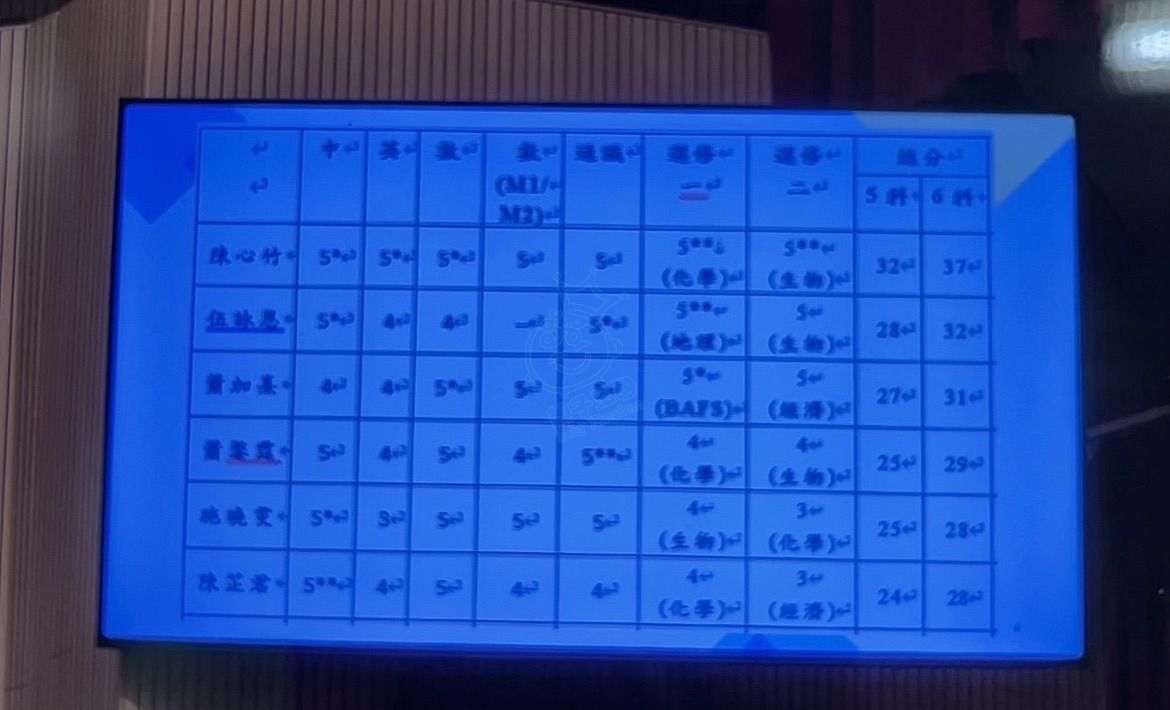 中 英 數 數 通識 選修 選修 總分
(M1/ 一 二
M2) 5 科 6 科
陳心竹 5* 5* 5* 5 5 5** 5** 32 37
(化學) (生物)
伍詠恩 5* 4 4 – 5* 5** 5 28 32
(地理) (生物)
加 4 4 5* 5 5 5* 5 27 31
(BAFS) (經濟)
5 4 5 4 5** 4 4 25 29
(化學) (生物)
施曉雯 5* 3 5 5 5 4 3 25 28
(生物) (化學)
陳芷君 5** 4 5 4 4 4 3 24 28
(化學) (經濟)